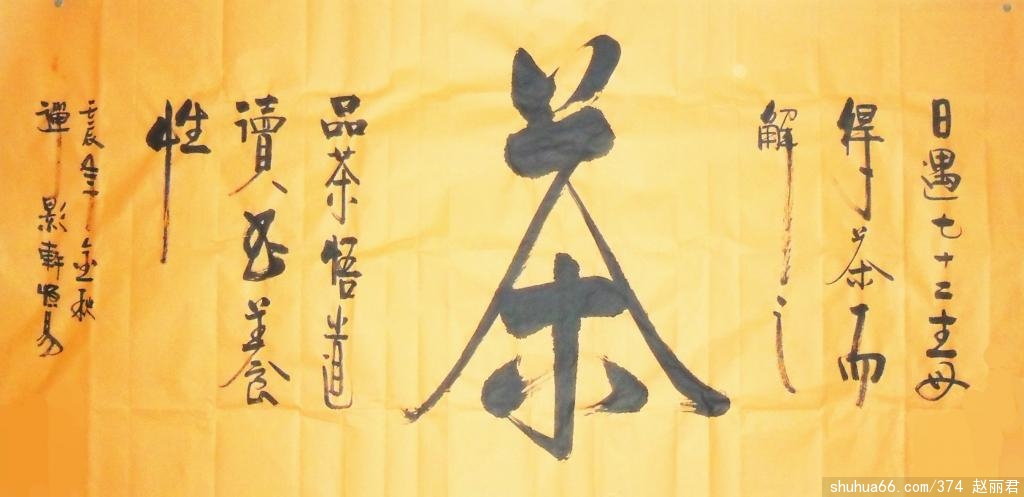 日遇七十二毒
得茶而
解之
茶
品茶悟道
讀书養
性
壬辰年金秋
影軒
shuhua66.com/374 赵丽君